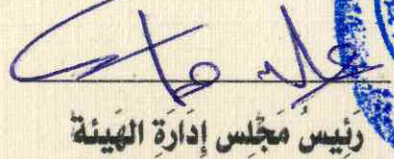 رَئيسُ مَجْلس إدَارَة الهَيئة